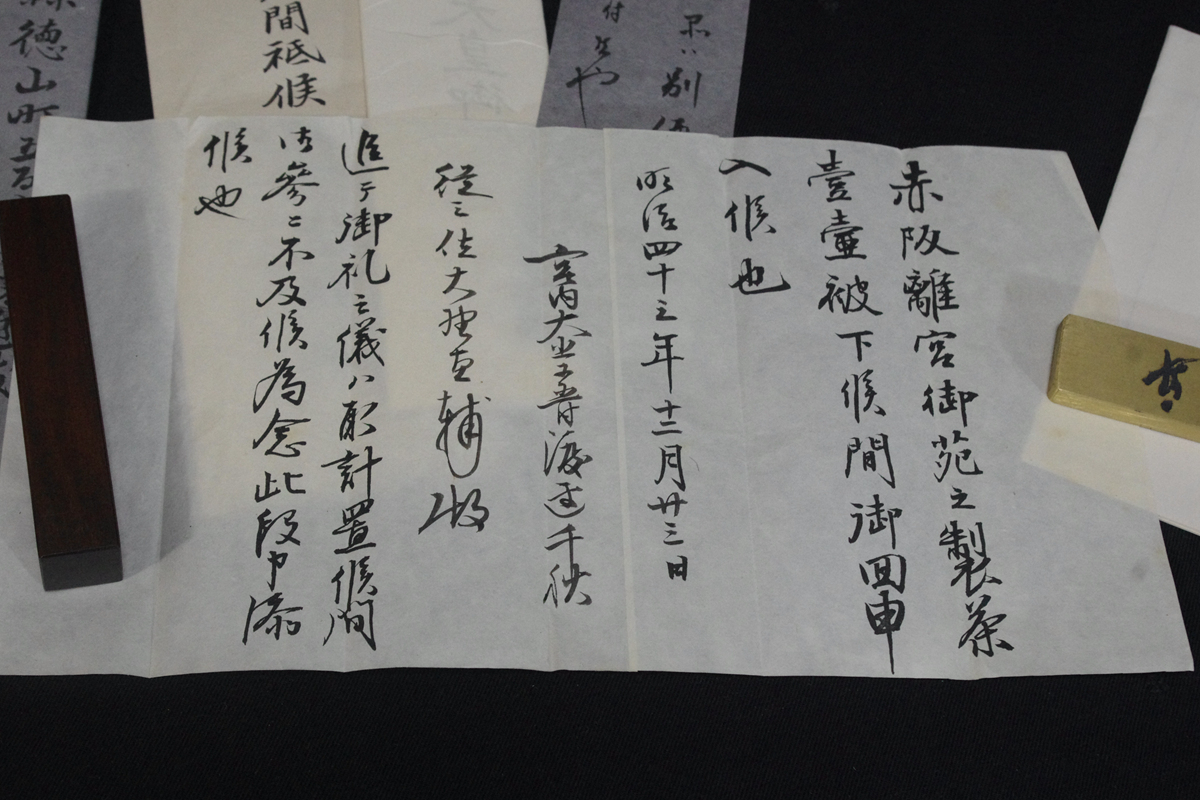 赤阪離宮御苑之製茶
壹壷被下候間御回申
入候也
明治四十三年十二月廿三日
宮内大臣子爵渡辺千秋
従三位大野直輔殿
追テ御礼之儀ハ取計置候間
御参ニ不及候為念此段申添
候也
間祗候
徳山町五百